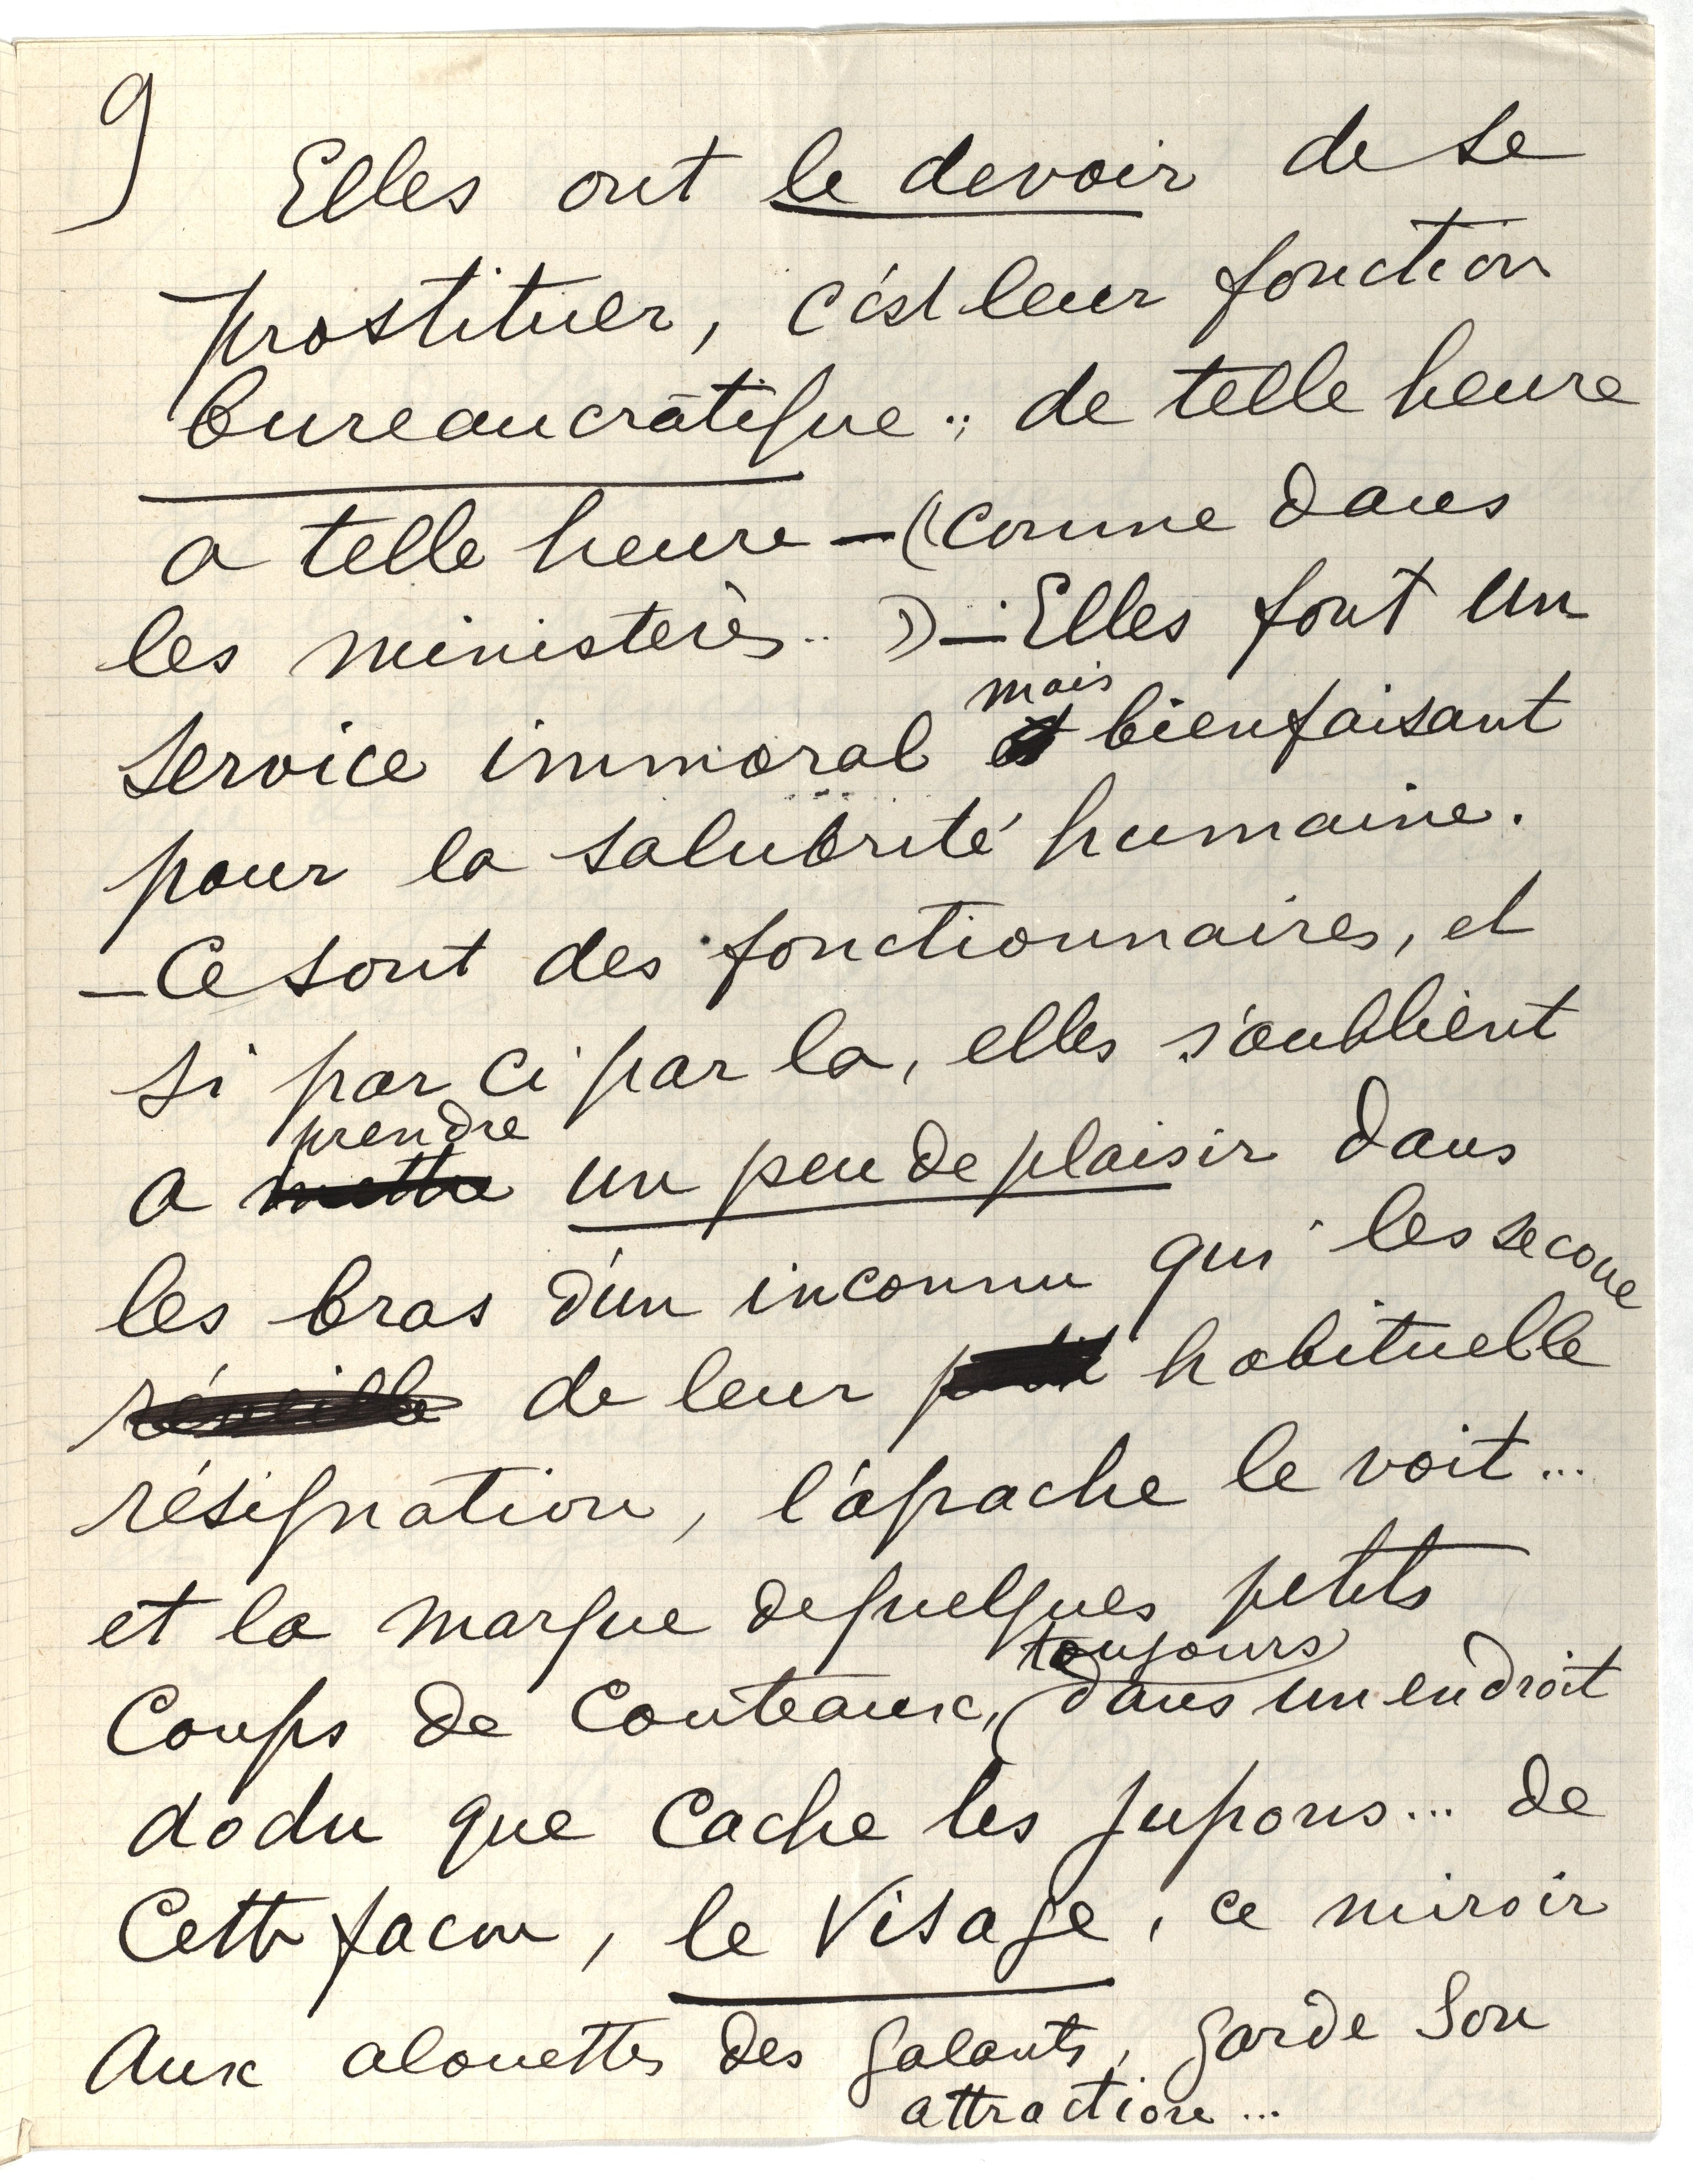 9
Elles ont le devoir de se
prostituer, c'est leur fonction
bureaucratique : de telle heure
a telle heure — (comme dans
les ministeres .. ) — Elles font un
mais
service immoral et bienfaisant
pour la salubrité humaine.
— Ce sont des fonctionnaires, et
si par ci par la, elles s'oublient
prendre
a mettre un peu de plaisir dans
les bras d'un inconnu qui les secoue
réveille de leur habituelle
résignation, l'apache le voit...
et la marque de quelques petits
toujours
Coups de Couteaux, (dans un endroit
dodu que Cache les jupons... de
Cette facon, le Visage, ce miroir
Aux alouettes des galants, garde Son
attraction...